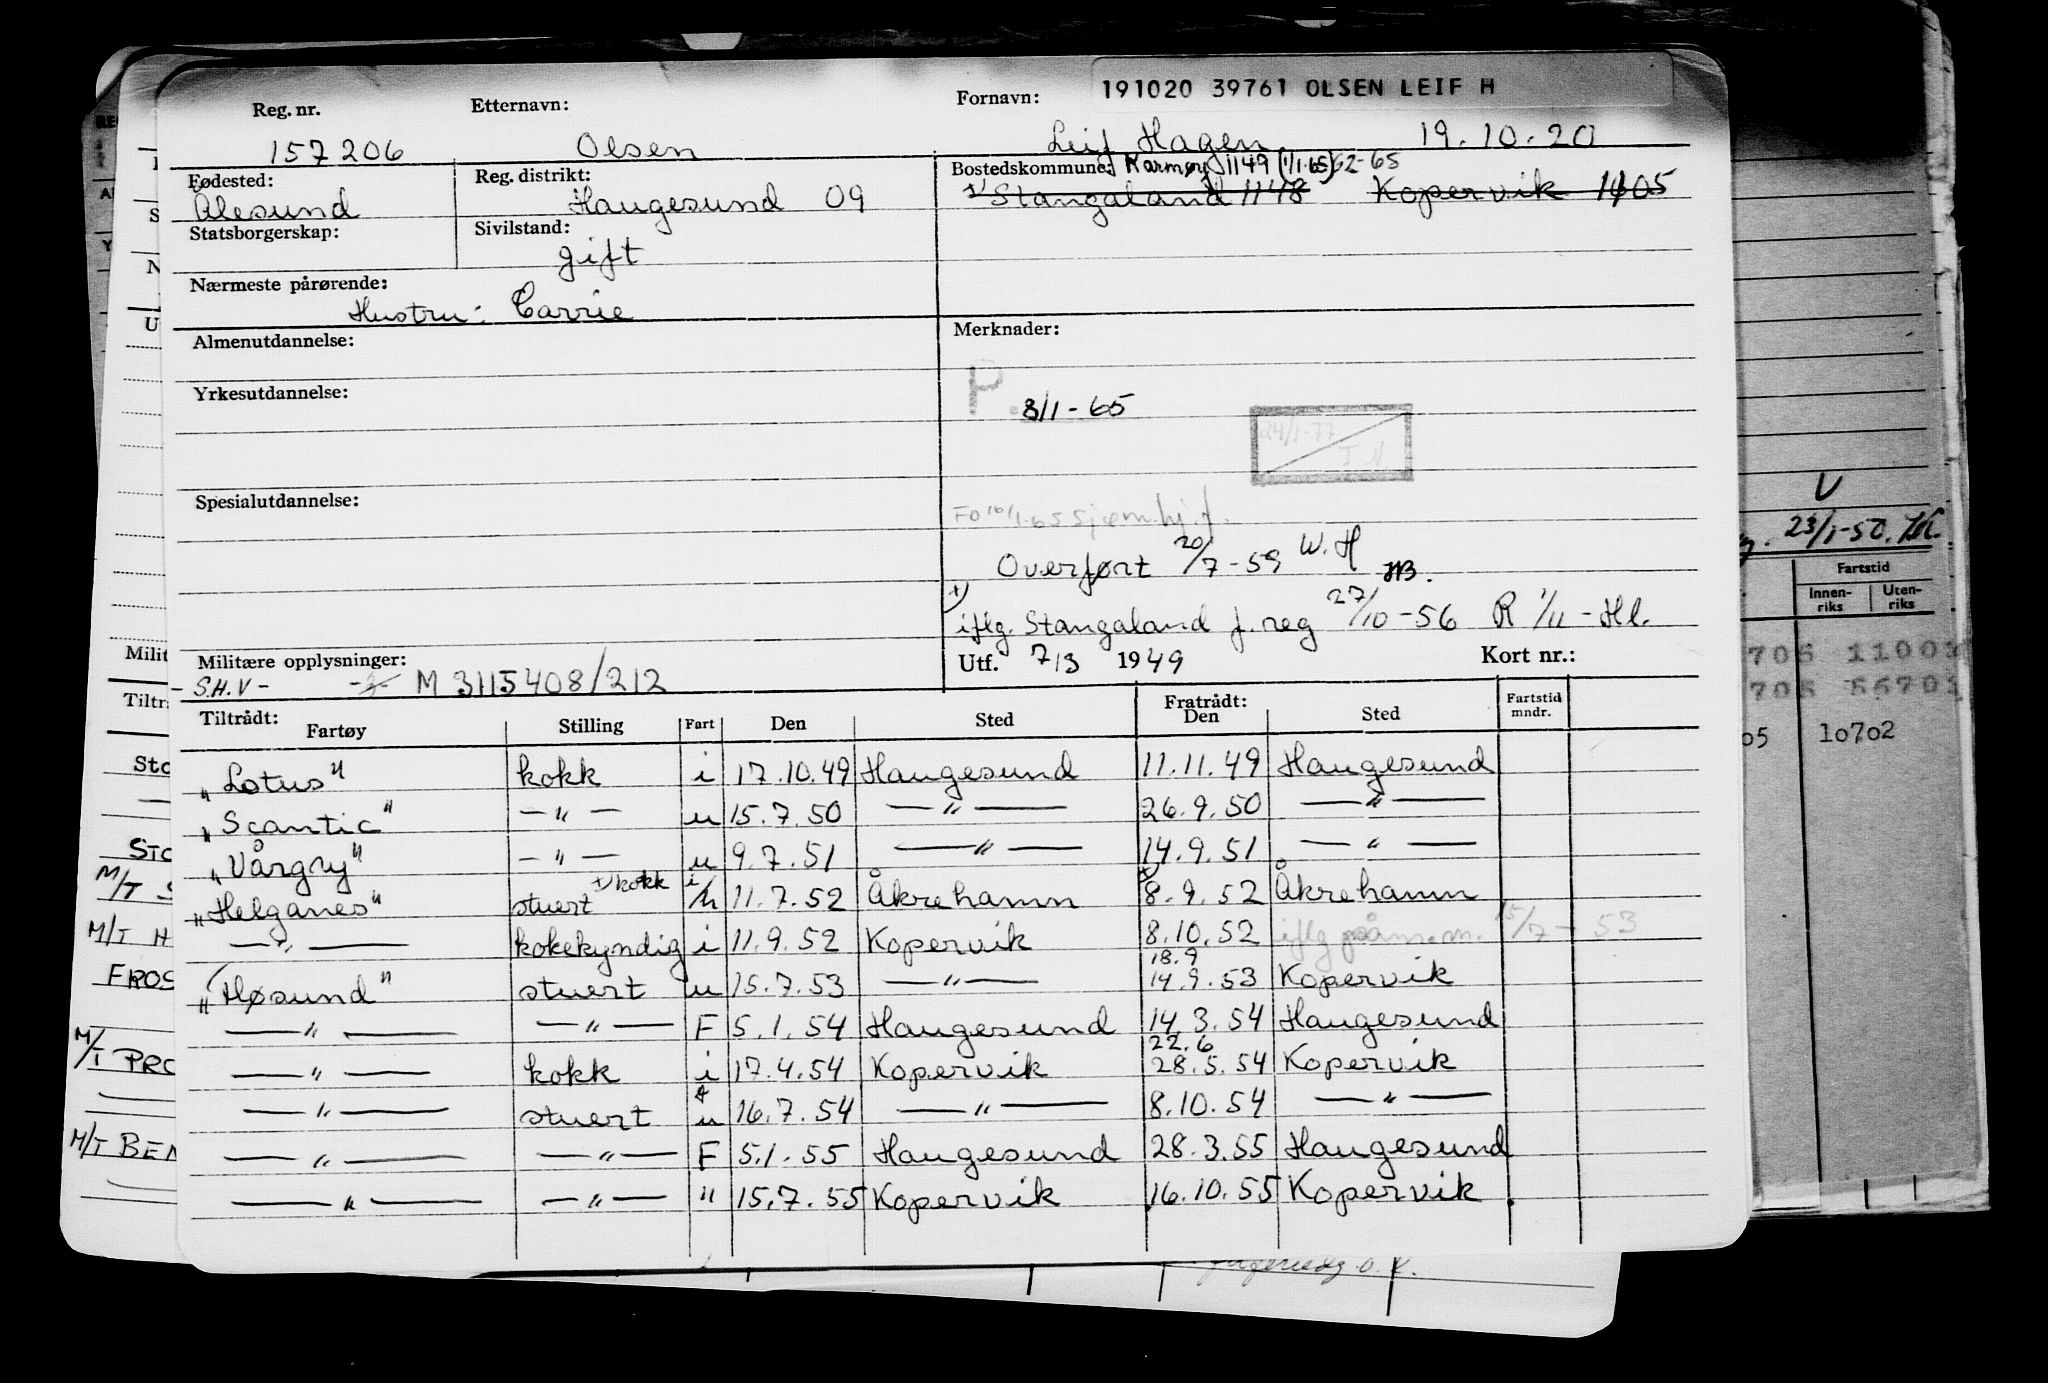 191020 39761 OLSEN LEIF H
Reg. nr. Etternavn: Fornavn:
157206 Olsen Leif Hagen 19.10.20
Fødested: Reg. distrikt: Bostedskommune: Karmøy 1149 (1/1-65) 62-65
Ålesund Haugesund 09 Stangaland 1148 Kopervik 1105
Statsborgerskap: Sivilstand:
gift
Nærmeste pårørende:
Hustru: Carrie
Almenutdannelse: Merknader:
Yrkesutdannelse:
P. 8/1-65
24/1-77
Spesialutdannelse:
Overført 20/7-59 W.H
iflg. Stangaland f.reg 27/10-56 R 1/11-Hl.
Militære opplysninger: Utf. 7/3 1949 Kort nr.:
-S.H.V- M 3115408/212
Tiltrådt: Fratrådt:
Fartøy Stilling Fart Den Sted Den Sted Fartstid mndr.
„Lotus" kokk i 17.10.49 Haugesund 11.11.49 Haugesund
„Scantic" —"— u 15.7.50 —"— 26.9.50 —"—
„Vårgry" —"— u 9.7.51 —"— 14.9.51 —"—
„Helganes" stuert +kokk i/u 11.7.52 Åkrehamn 8.9.52 Åkrehamn
—"— kokekyndig i 11.9.52 Kopervik 8.10.52 iflg 15/7-53
18.9
„Høsund" stuert u 15.7.53 —"— 14.9.53 Kopervik
—"— —"— F 5.1.54 Haugesund 14.3.54 Haugesund
22.6
—"— kokk i 17.4.54 Kopervik 28.5.54 Kopervik
—"— stuert u 16.7.54 —"— 8.10.54 —"—
—"— —"— F 5.1.55 Haugesund 28.3.55 Haugesund
—"— —"— " 15.7.55 Kopervik 16.10.55 Kopervik
Milit
Tiltr
Sto
STO
M/T S
M/T H
FROS
M/T PRO
M/T BEN
V
23/1-50.
Fartstid
Innen-riks Uten-riks
705 11001
705 56701
05 10702